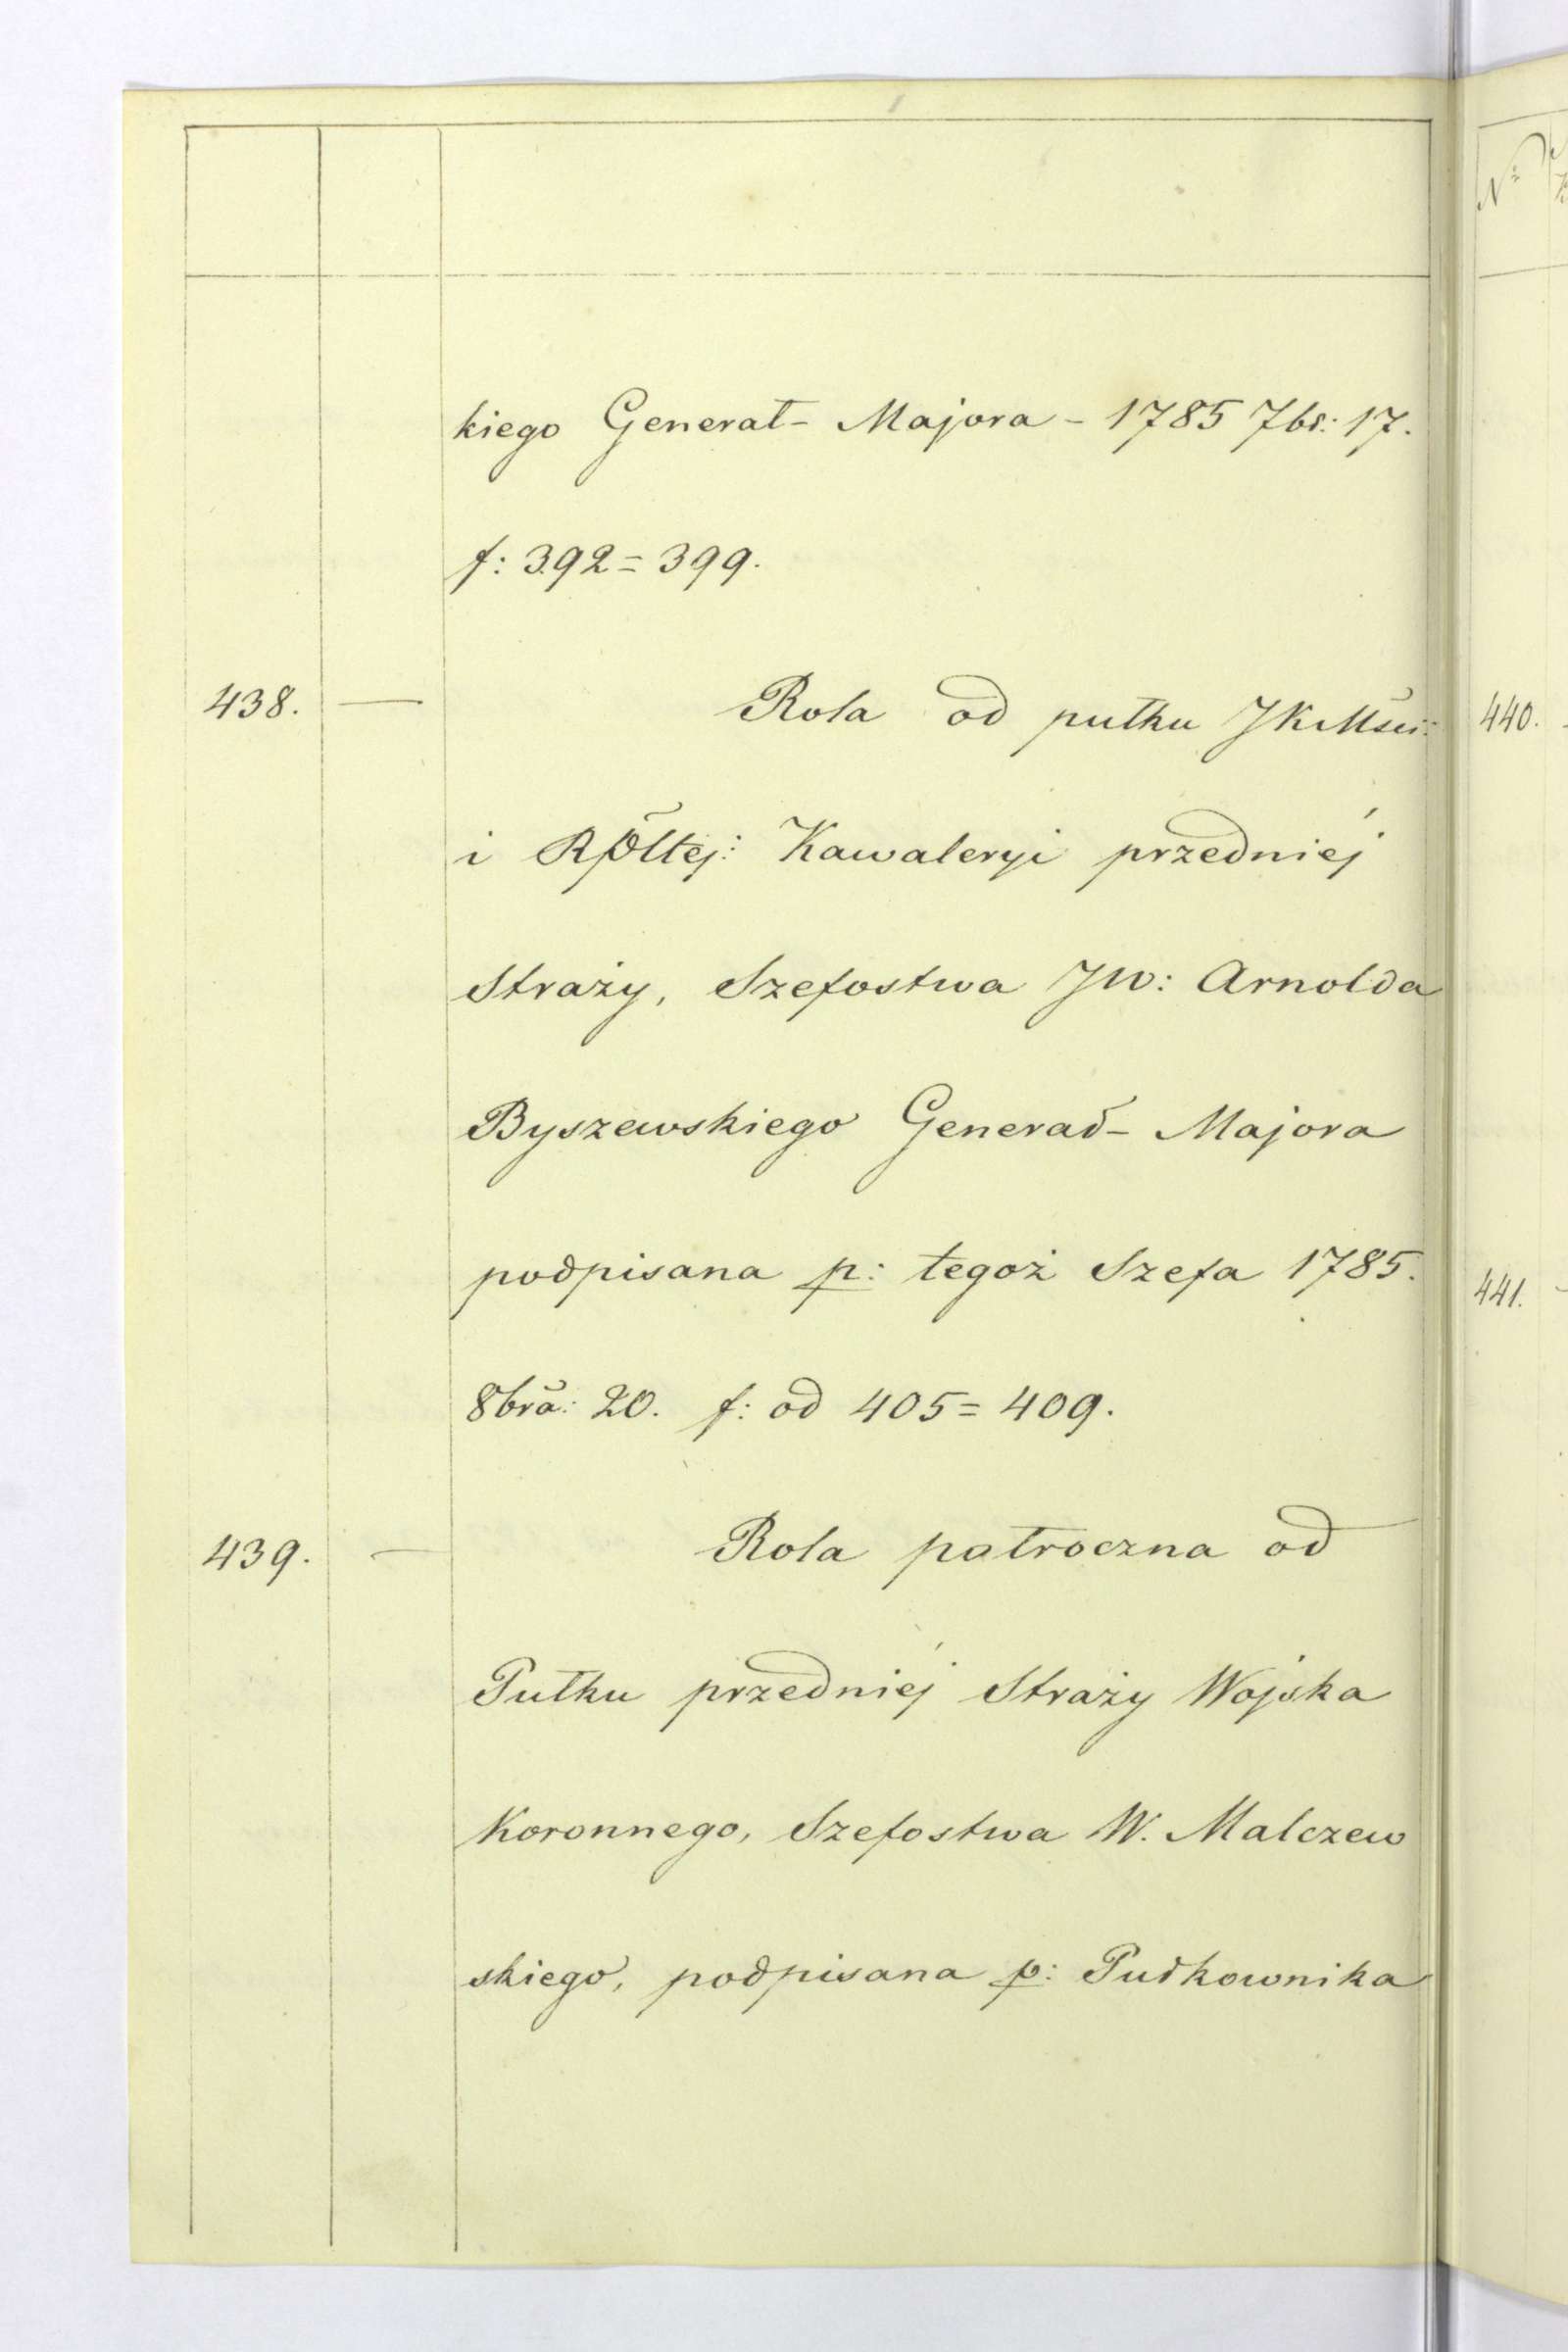 kiego Generał- Majora - 1785 7br: 17.
f: 392 = 399.
438. — Rola od pułku JKMści:
i Rpltej: Kawaleryi przedniéj
Straży, Szefostwa JW: Arnolda
Byszewskiego Generał- Majora
podpisana p: tegoż Szefa 1785.
8bra: 20. f: od 405 = 409.
439. — Rola pałroczna od
Pułku przedniéj Straży Wojska
Koronnego, Szefostwa W. Malczew
skiego, podpisana p: Pułkownika
Nº
440.
441.